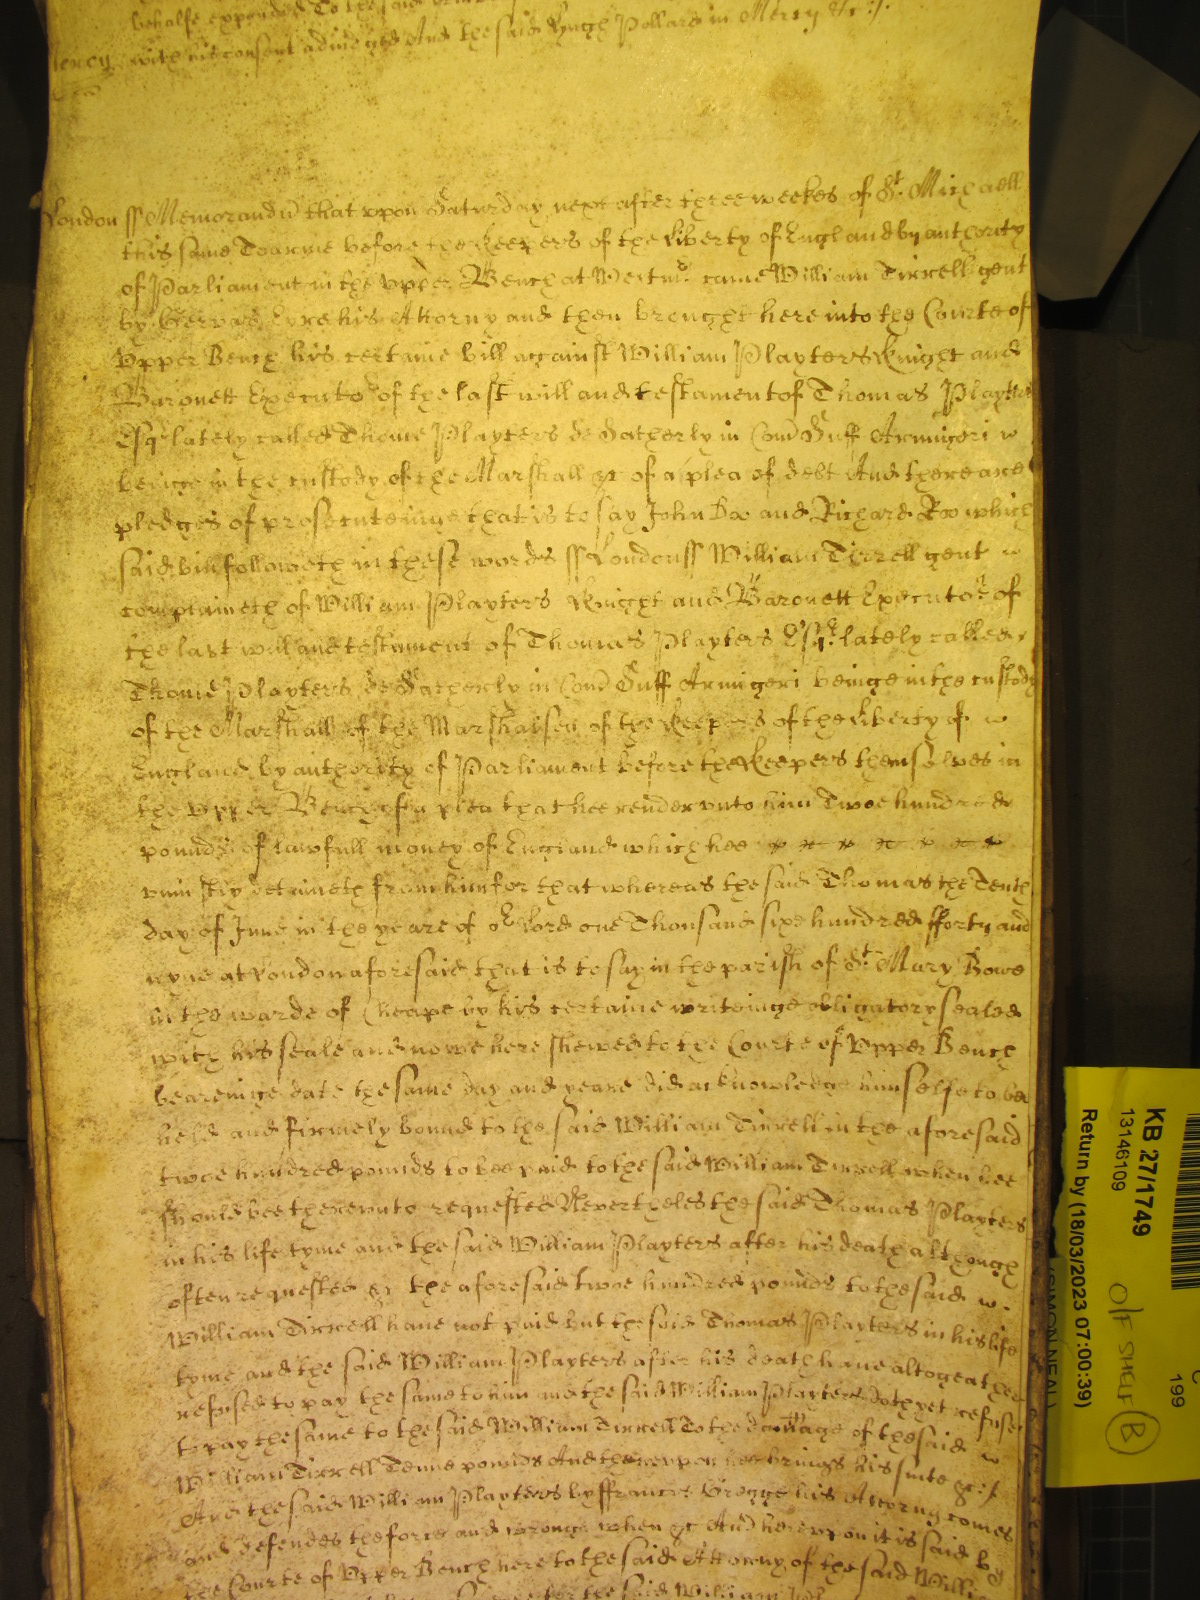 behalfe expended To the said
Mercy with his consent adiudged And the said Hugh Pollard in Mercy &c:/.
London ss Memorandū that vpon Saturday next after three weekes of St. Michaell
this same Tearme before the Keepers of the Liberty of England by authority
of Parliament in the vpper Bench at Westmr. came William Tirrell gent
by Gervas Eyre his Attorny and then brought here into the Courte of
Vpper Bench his certaine bill against William Playters Knight and
Baronett Executor of the last will and testament of Thomas Playters
Esqr lately called Thome Playters de Satherly in Com Suff Armigeri
beinge in the custody of the Marshall &c of a plea of debt And there are
pledges of prosecuteinge that is to say John Doo and Richard Roo which
said bill followeth in these words ss London ss William Tirrell gent
complaineth of William Playters Knight and Baronett Executor of
the last will and testament of Thomas Playters Esqr. lately called
Thome Playters de Satherly in Com Suff Armigeri beinge in the custody
of the Marshall of the Marshalsea of the Keepers of the Liberty of
England by authority of Parliament before the Keepers themselves in
the vpper Bench of a plea that hee render vnto him Twoe hundred
pounds of lawfull money of England which hee
vniustly detaineth from him for that whereas the said Thomas the Tenth
day of June in the yeare of or Lord one Thousand sixe hundred fforty and
nyne at London aforesaid that is to say in the parish of St. Mary Bowe
in the warde of Cheape by his certaine writeinge obligatory sealed
with his seale and nowe here shewed to the Courte of Vpper Bench
beareinge date the same day and yeare did acknowledge himselfe to be
held and firmely bound to the said William Tirrell in the aforesaid
twoe hundred pounds to bee paid to the said William Tirrell when hee
should bee therevnto requested Neverthelesse the said Thomas Playters
in his life tyme and the said William Playters after his death although
often requested &c the aforesaid twoe hundred pounds to the said
William Tirrell haue not paid but the said Thomas Playters in his life
tyme and the said William Playters after his death haue altogeather
refused to pay the same to him and the said William Playters doth yet refuse
to pay the same to the said William Tirrell To the damage of the said
William Tirrell Tenne pounds And therevpon hee brings his suite &c:/
And the said William Playters by ffrancis his Attorny comes
and defendes the force and wronge when &c And herevpon it is said by
the Courte of Vpper Bench here to the said Attorny of the said Willi
the said William
KB 27/1749
13146109
Return by (18/03/2023 07:00:39)
(SIMON NEAL)
199
O/F SHELF (B)